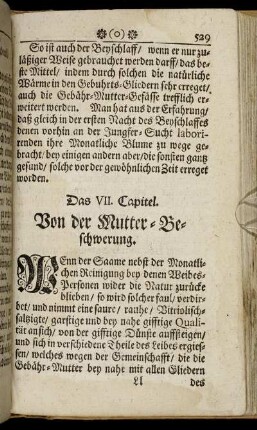 ❀(o)❀ 529
So ist auch der Beyschlaff/ wenn er nur zu-
läßiger Weise gebrauchet werden darff/ das be-
ste Mittel/ indem durch solchen die natürliche
Wärme in den Gebuhrts-Gliedern sehr erreget/
auch die Gebähr-Mutter-Gefässe trefflich er-
weitert werden. Man hat aus der Erfahrung/
daß gleich in der ersten Nacht des Beyschlaffes
denen vorhin an der Jungfer-Sucht labori-
renden ihre Monatliche Blume zu wege ge-
bracht/ bey einigen andern aber/ die sonsten gantz
gesund/ solche vor der gewöhnlichen Zeit erreget
worden.
Das VII. Capitel.
Von der Mutter-Be-
schwerung.
WEnn der Saame nebst der Monatli-
chen Reinigung bey denen Weibes-
Personen wider die Natur zurücke
blieben/ so wird solcher faul/ verdir-
bet/ und nimmt eine saure/ rauhe/ Vitriolisch-
saltzigte/ garstige und bey nahe gifftige Quali-
tät an sich/ von der gifftige Dünste auffsteigen/
und sich in verschiedene Theile des Leibes ergies-
sen/ welches wegen der Gemeinschafft/ die die
Gebähr-Mutter bey nahe mit allen Gliedern
Ll des